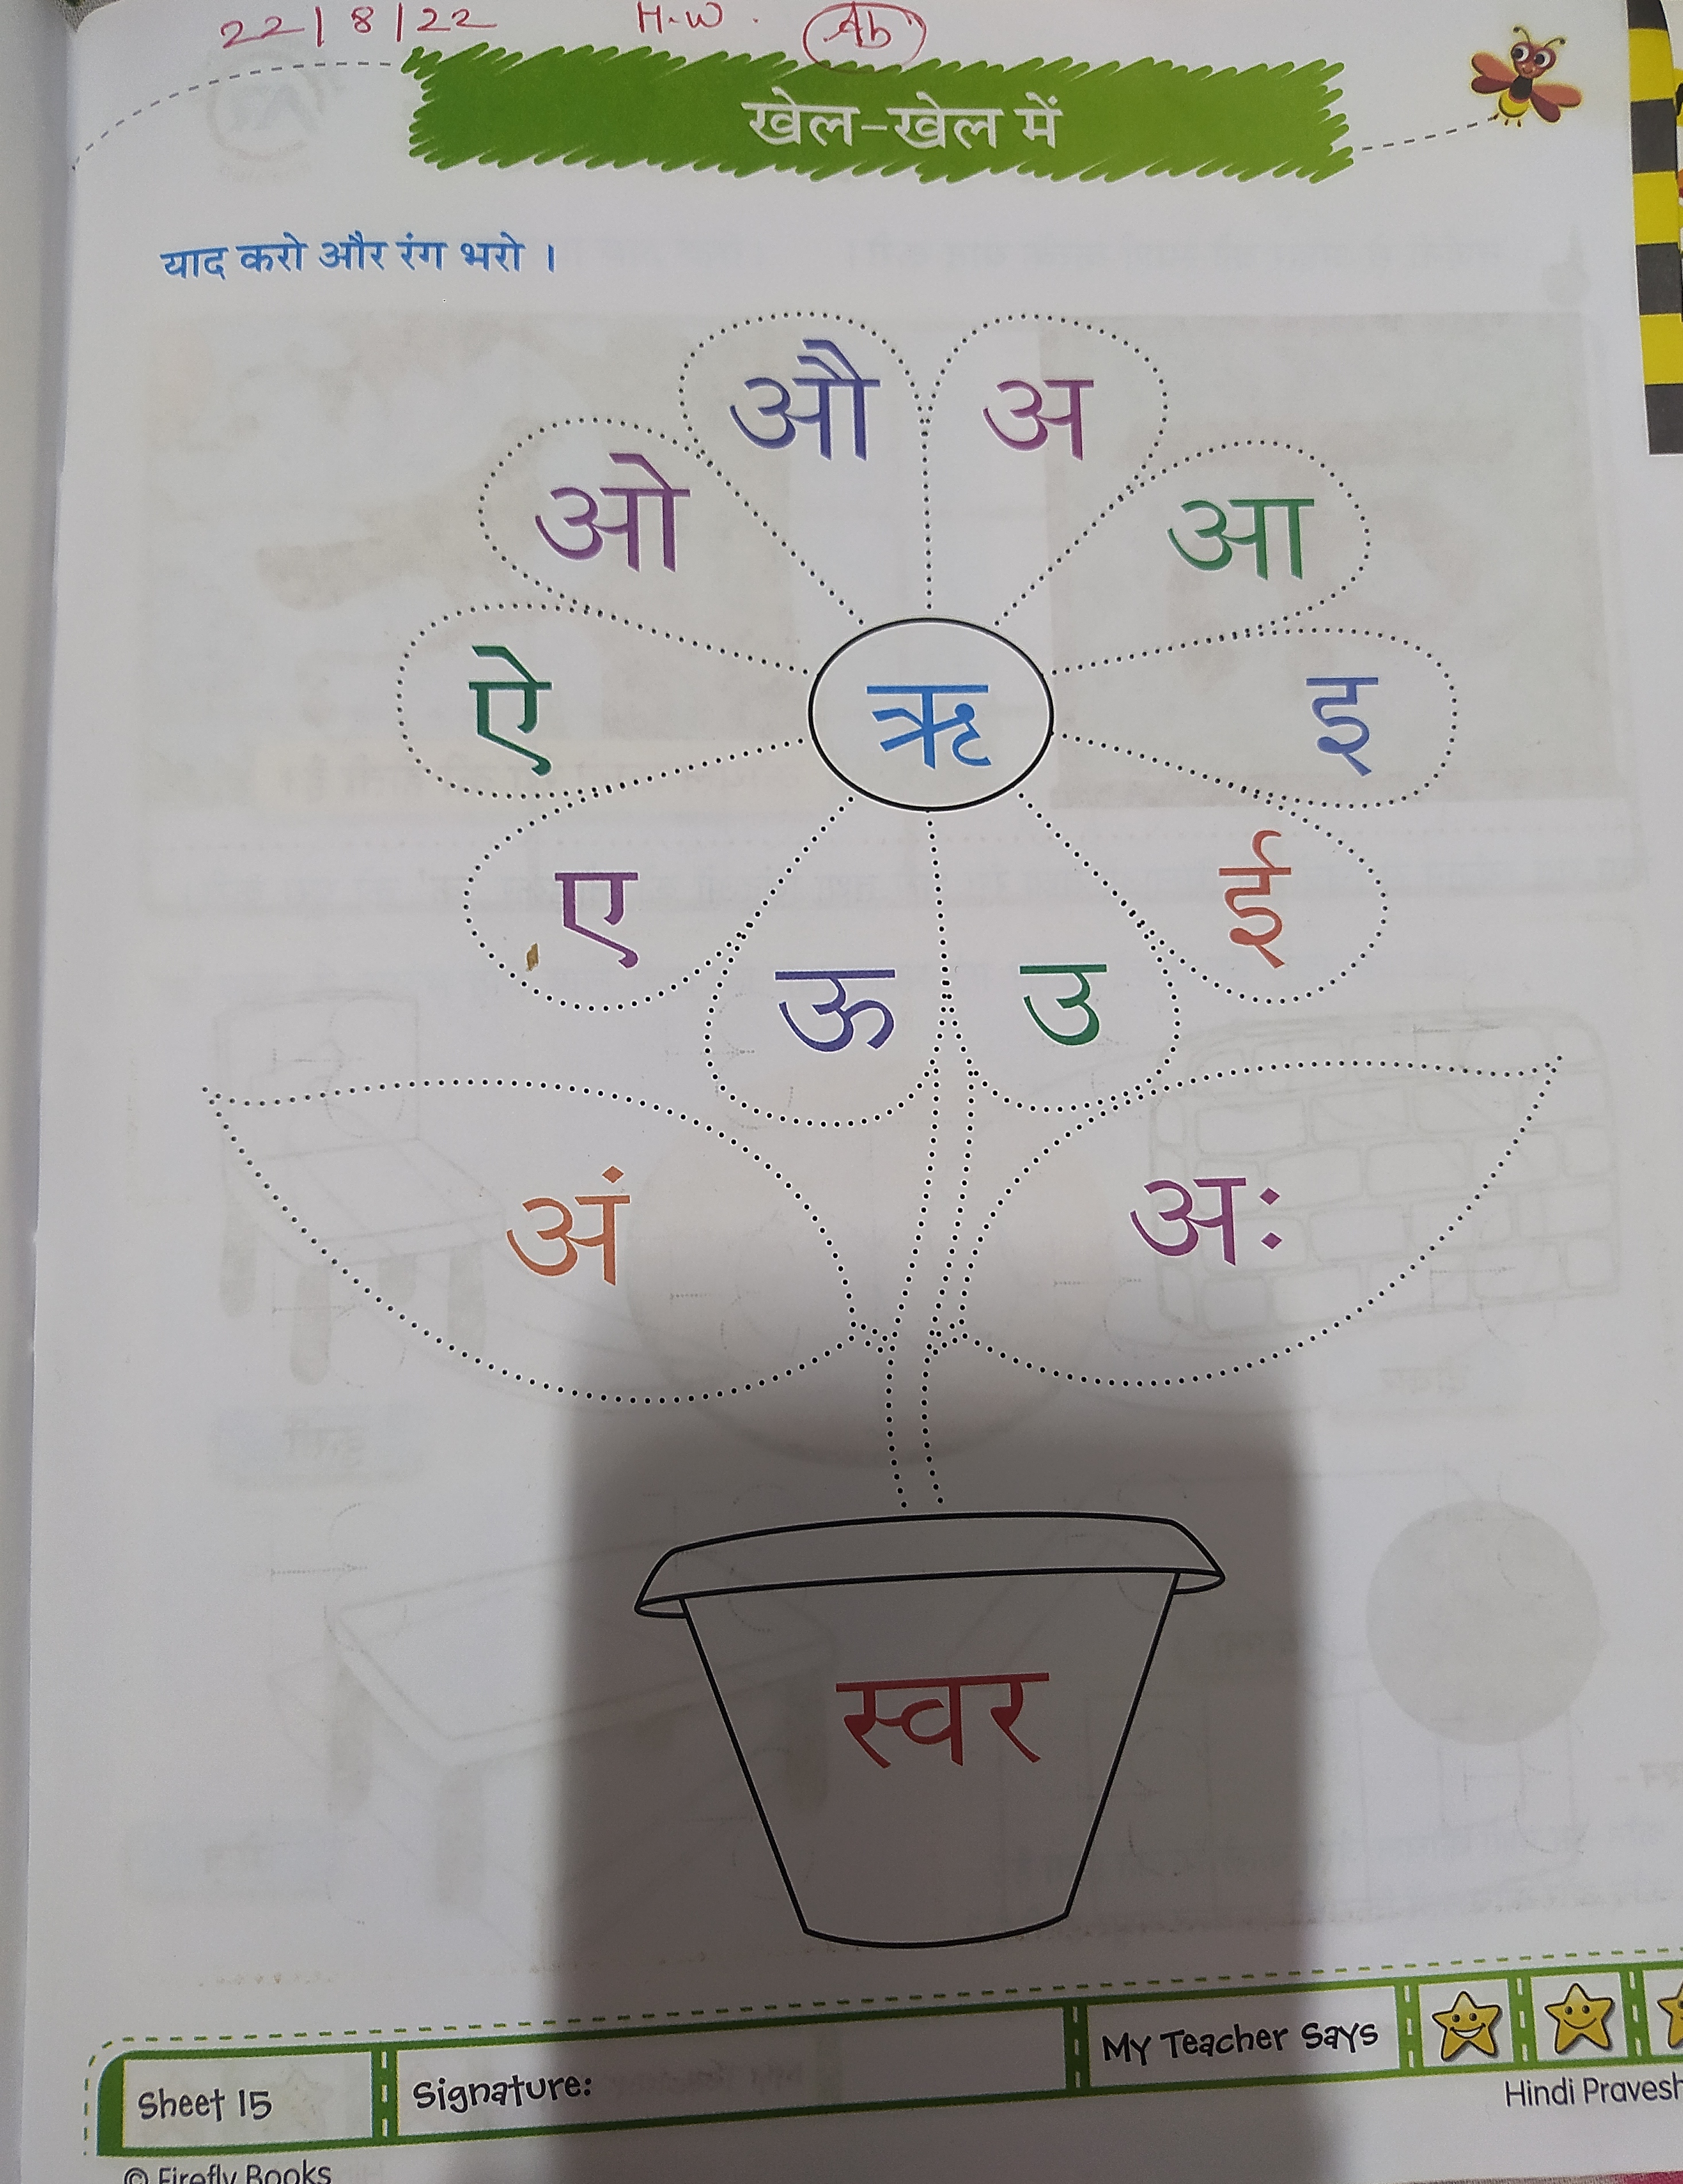 22/8/22 H.W. Ab
खेल-खेल में
याद करो और रंग भरो ।
औ अ
ओ आ
ऐ ऋ इ
ए ई
ऊ उ
अं अः
स्वर
My Teacher Says
Sheet 15 Signature:
Hindi Pravesh
© Firefly Books